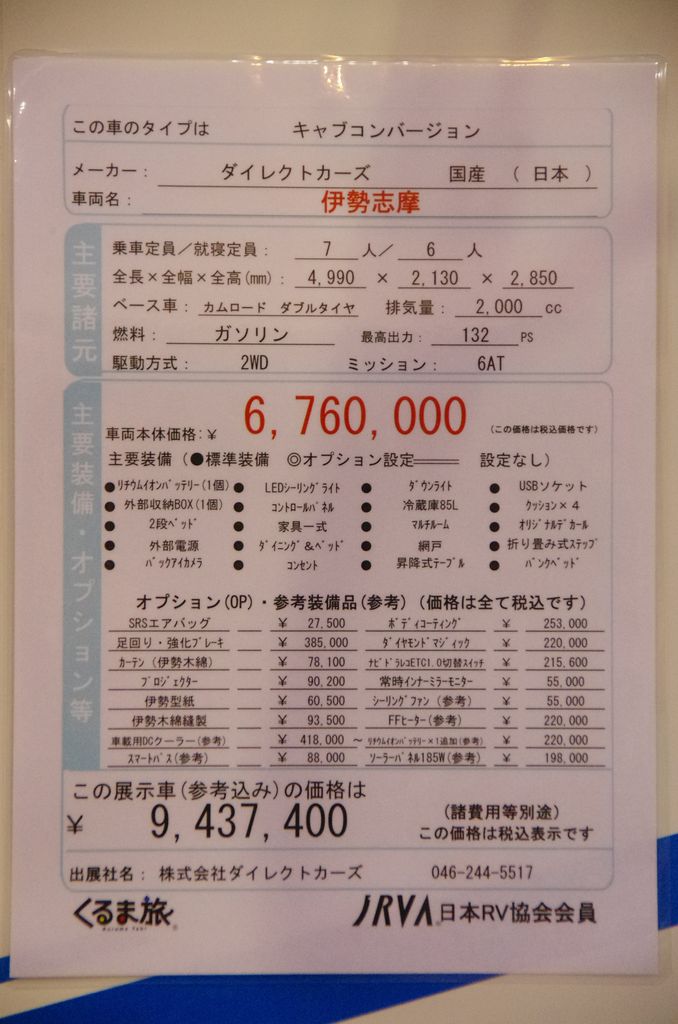 この車のタイプは キャブコンバージョン
メーカー： ダイレクトカーズ 国産 （ 日本 ）
車両名： 伊勢志摩
主要諸元
乗車定員／就寝定員： 7 人／ 6 人
全長×全幅×全高(mm)： 4,990 × 2,130 × 2,850
ベース車： カムロード ダブルタイヤ 排気量： 2,000 cc
燃料： ガソリン 最高出力： 132 PS
駆動方式： 2WD ミッション： 6AT
主要装備・オプション等
車両本体価格：￥ 6,760,000 （この価格は税込価格です）
主要装備（●標準装備 ◎オプション設定 ═══ 設定なし）
●ﾘﾁｳﾑｲｵﾝﾊﾞｯﾃﾘｰ(1個) ●LEDｼｰﾘﾝｸﾞﾗｲﾄ ●ﾀﾞｳﾝﾗｲﾄ ●USBソケット
●外部収納BOX(1個) ●ｺﾝﾄﾛｰﾙﾊﾟﾈﾙ ●冷蔵庫85L ●ｸｯｼｮﾝ×4
●2段ﾍﾞｯﾄﾞ ●家具一式 ●ﾏﾙﾁﾙｰﾑ ●ｵﾘｼﾞﾅﾙﾃﾞｶｰﾙ
●外部電源 ●ﾀﾞｲﾆﾝｸﾞ＆ﾍﾞｯﾄﾞ ●網戸 ●折り畳み式ｽﾃｯﾌﾟ
●ﾊﾞｯｸアイカメラ ●ｺﾝｾﾝﾄ ●昇降式ﾃｰﾌﾞﾙ ●ﾊﾞﾝｸﾍﾞｯﾄﾞ
オプション(OP)・参考装備品(参考) （価格は全て税込です）
SRSエアバッグ ￥ 27,500 ﾎﾞﾃﾞｨｺｰﾃｨﾝｸﾞ ￥ 253,000
足回り・強化ﾌﾞﾚｰｷ ￥ 385,000 ﾀﾞｲﾔﾓﾝﾄﾞﾏｼﾞｨｯｸ ￥ 220,000
ｶｰﾃﾝ（伊勢木綿） ￥ 78,100 ﾅﾋﾞﾄﾞﾗﾚｺETC1.0切替ｽｲｯﾁ ￥ 215,600
ﾌﾟﾛｼﾞｪｸﾀｰ ￥ 90,200 常時ｲﾝﾅｰﾐﾗｰﾓﾆﾀｰ ￥ 55,000
伊勢型紙 ￥ 60,500 ｼｰﾘﾝｸﾞﾌｧﾝ（参考） ￥ 55,000
伊勢木綿縫製 ￥ 93,500 FFﾋｰﾀｰ(参考) ￥ 220,000
車載用DCクーラー(参考) ￥ 418,000 ～ ﾘﾁｳﾑｲｵﾝﾊﾞｯﾃﾘｰ×1追加(参考) ￥ 220,000
ｽﾏｰﾄﾊﾞｽ(参考) ￥ 88,000 ｿｰﾗｰﾊﾟﾈﾙ185W(参考) ￥ 198,000
この展示車(参考込み)の価格は
￥ 9,437,400 （諸費用等別途）
この価格は税込表示です
出展社名： 株式会社ダイレクトカーズ 046-244-5517
くるま旅 JRVA 日本RV協会会員
Kuruma Tabi